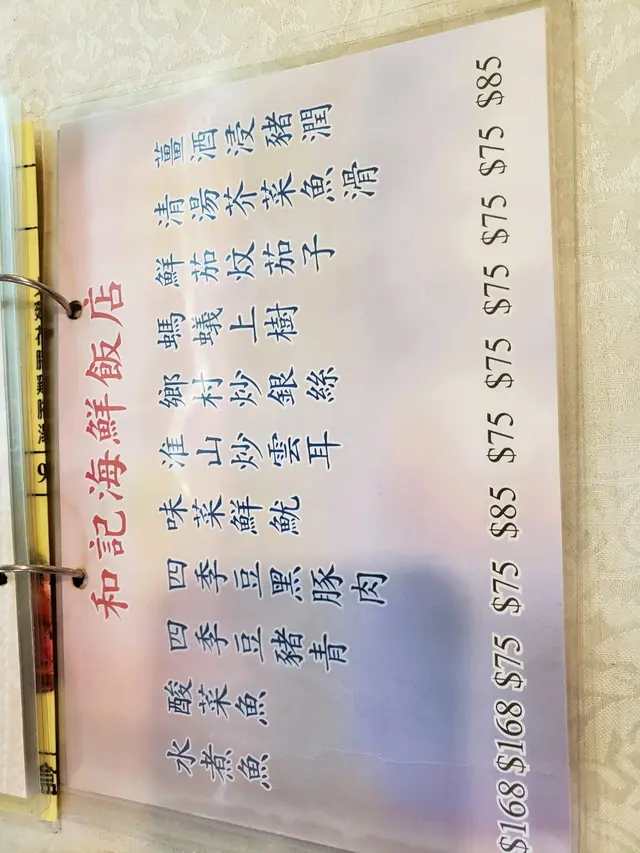 和記海鮮飯店
薑酒浸豬潤 $85
清湯芥菜魚滑 $75
鮮茄炆茄子 $75
螞蟻上樹 $75
鄉村炒銀絲 $75
淮山炒雲耳 $75
味菜鮮魷 $85
四季豆黑豚肉 $75
四季豆豬青 $75
酸菜魚 $168
水煮魚 $168